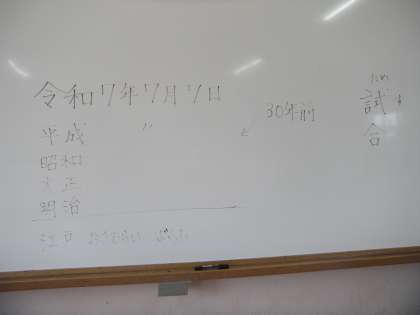 令和7年7月7日
平成 〃
昭和
大正
明治
江戸
30年前
試
合